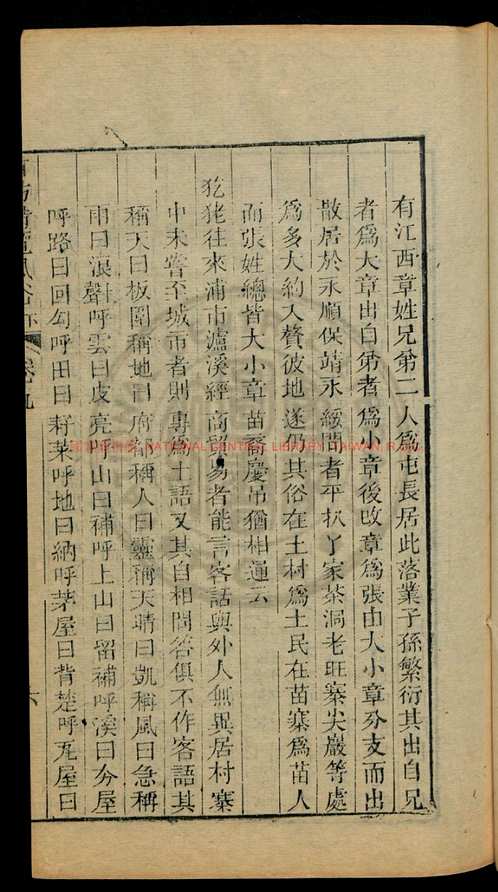 有江西章姓兄第二人為屯長居此落業子孫繁衍其出自兄
者為大章出自第者為小章後改章為張由大小章分支而出
散居於永順保靖永綏間者平扒丫家茶洞老旺寨尖巖等處
為多大約入贅彼地遂仍其俗在土村為土民在苗寨為苗人
而張姓總皆大小章苗裔慶吊猶相通云
犵狫往來浦市瀘溪經商貿易者能言客話與外人無異居村寨
中未嘗至城市者則專為土語又其自相問答俱不作客語其
稱天曰板圍稱地曰府都稱人曰靈稱天晴曰凱稱風曰急稱
雨曰浪聲呼雲曰皮亮呼山曰補呼上山曰留補呼溪曰夯屋
呼路曰回勾呼田曰耔萊呼地曰納呼茅屋曰背楚呼瓦屋曰
卷九
六
NATIONAL CENTRAL LIBRARY, TAIWAN, R.